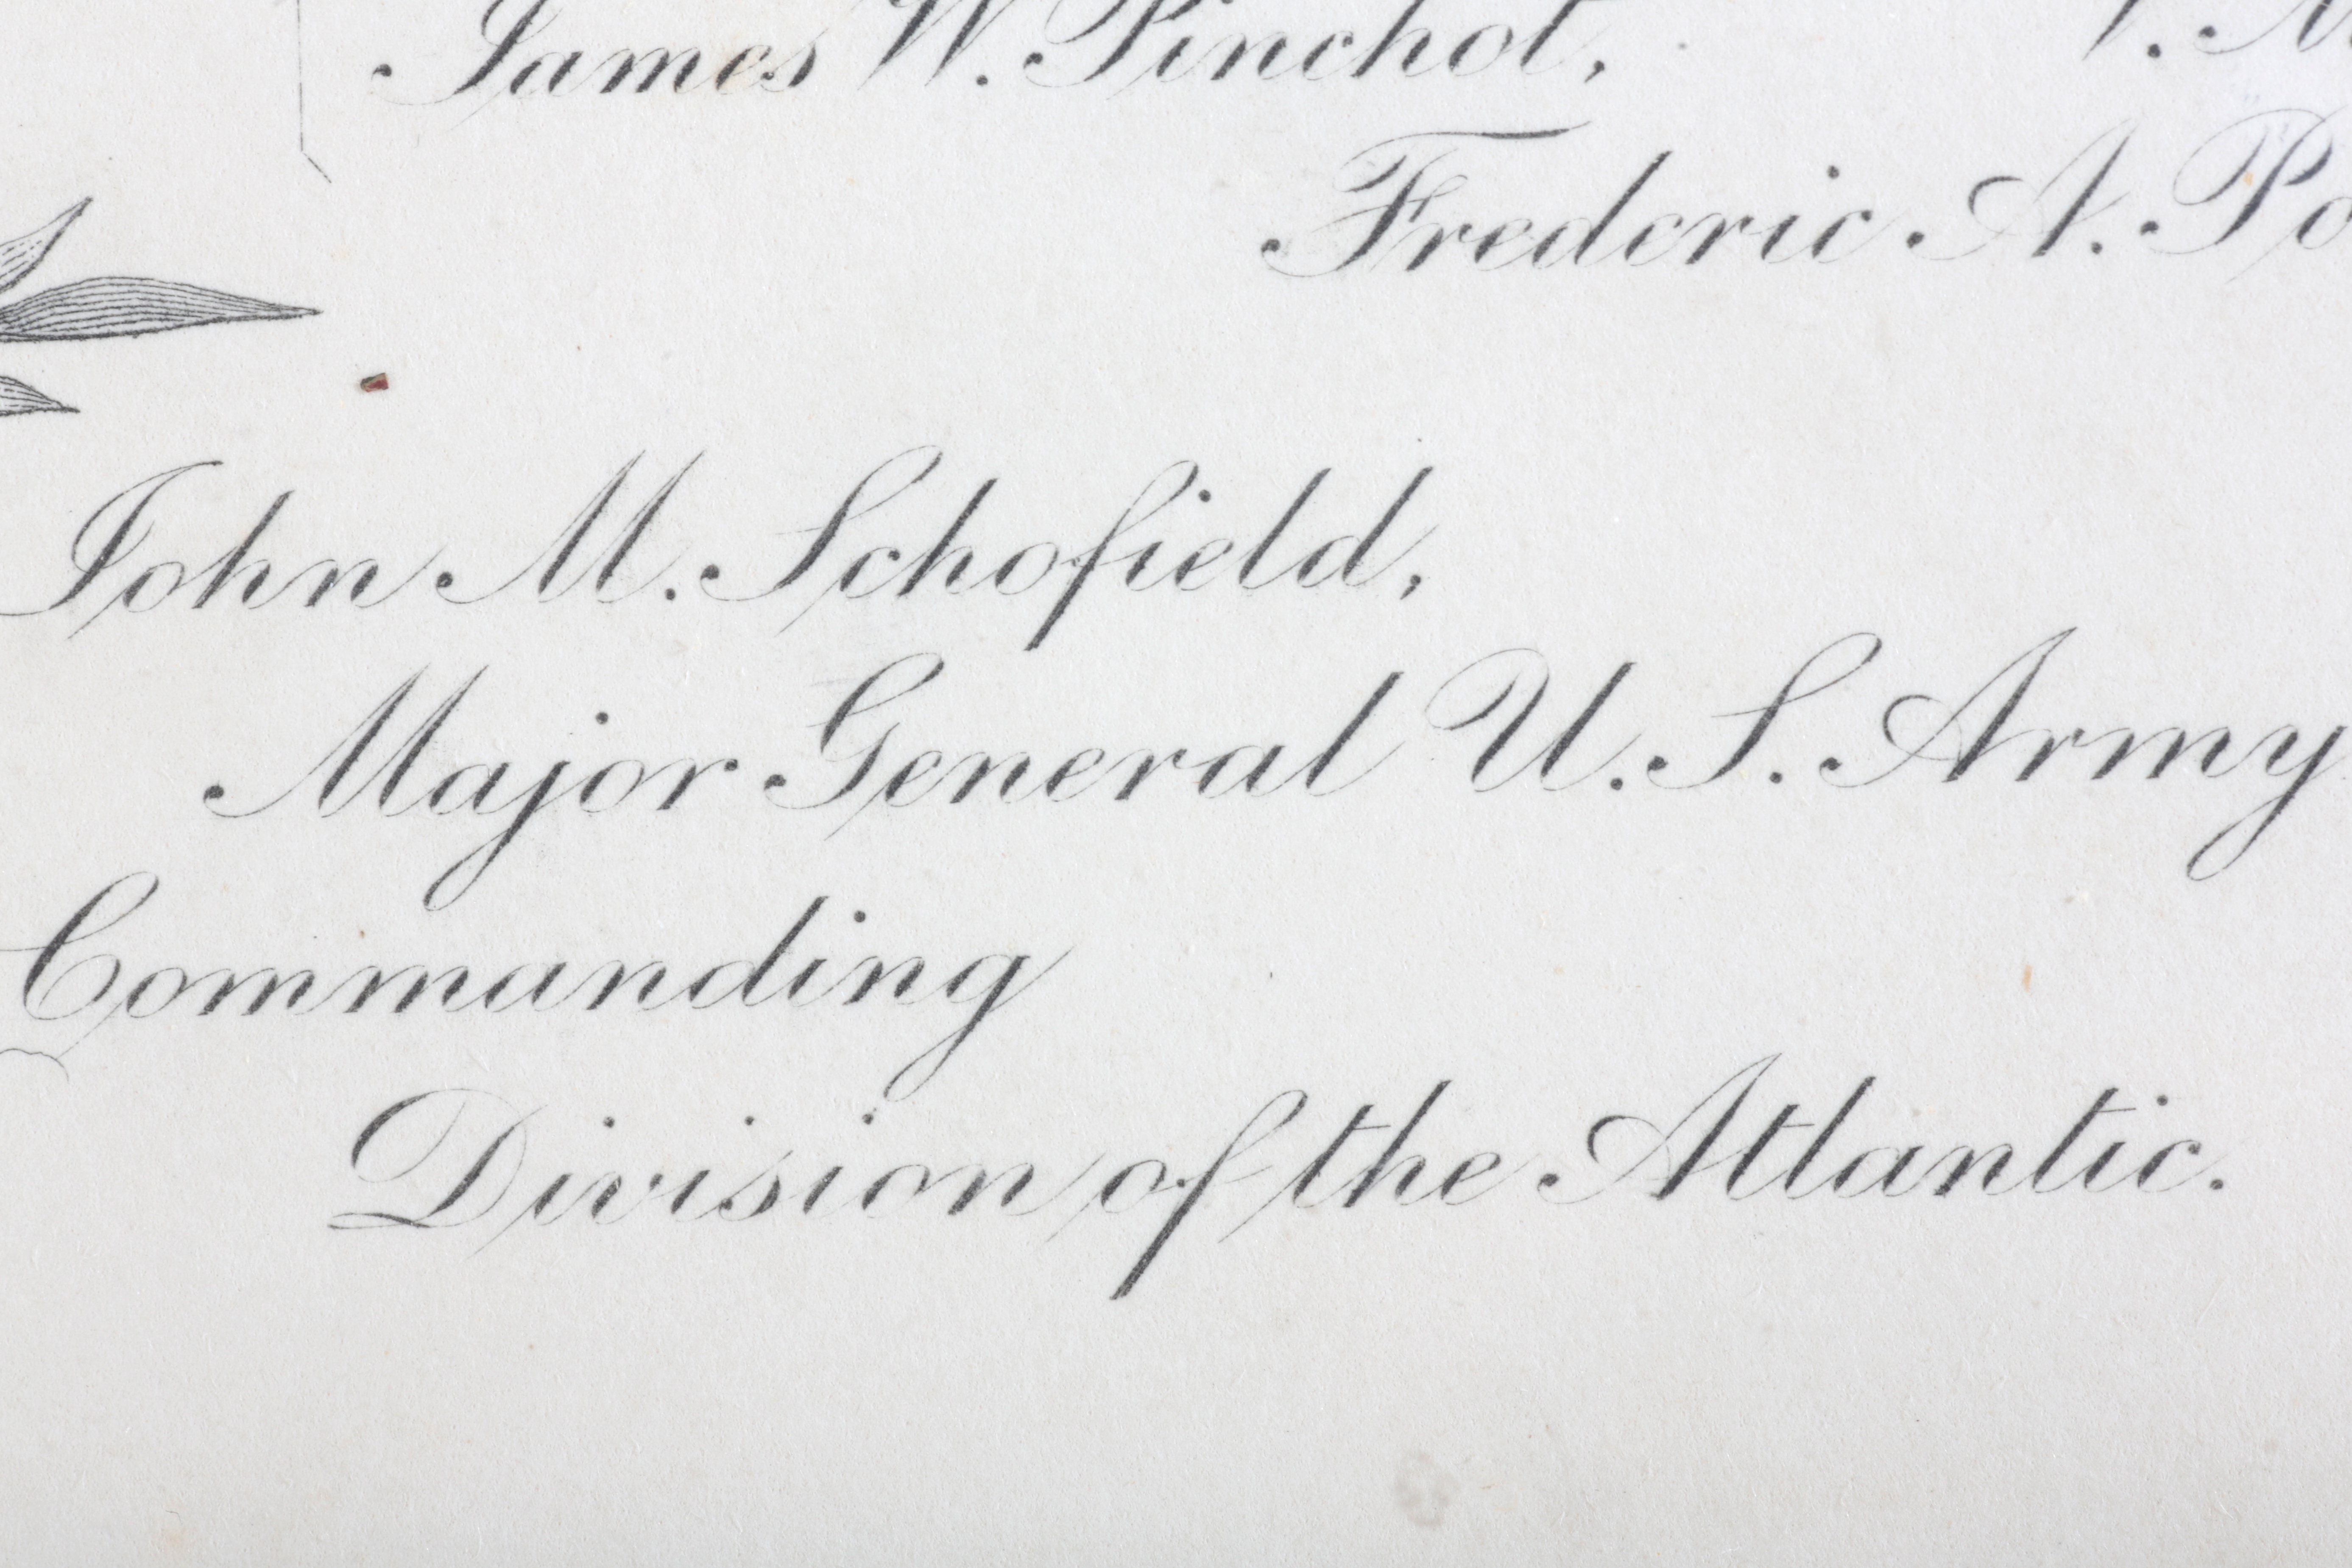 James W. Pinchot,
Frederic A. Po
John M. Schofield,
Major General U.S. Army
Commanding
Division of the Atlantic.